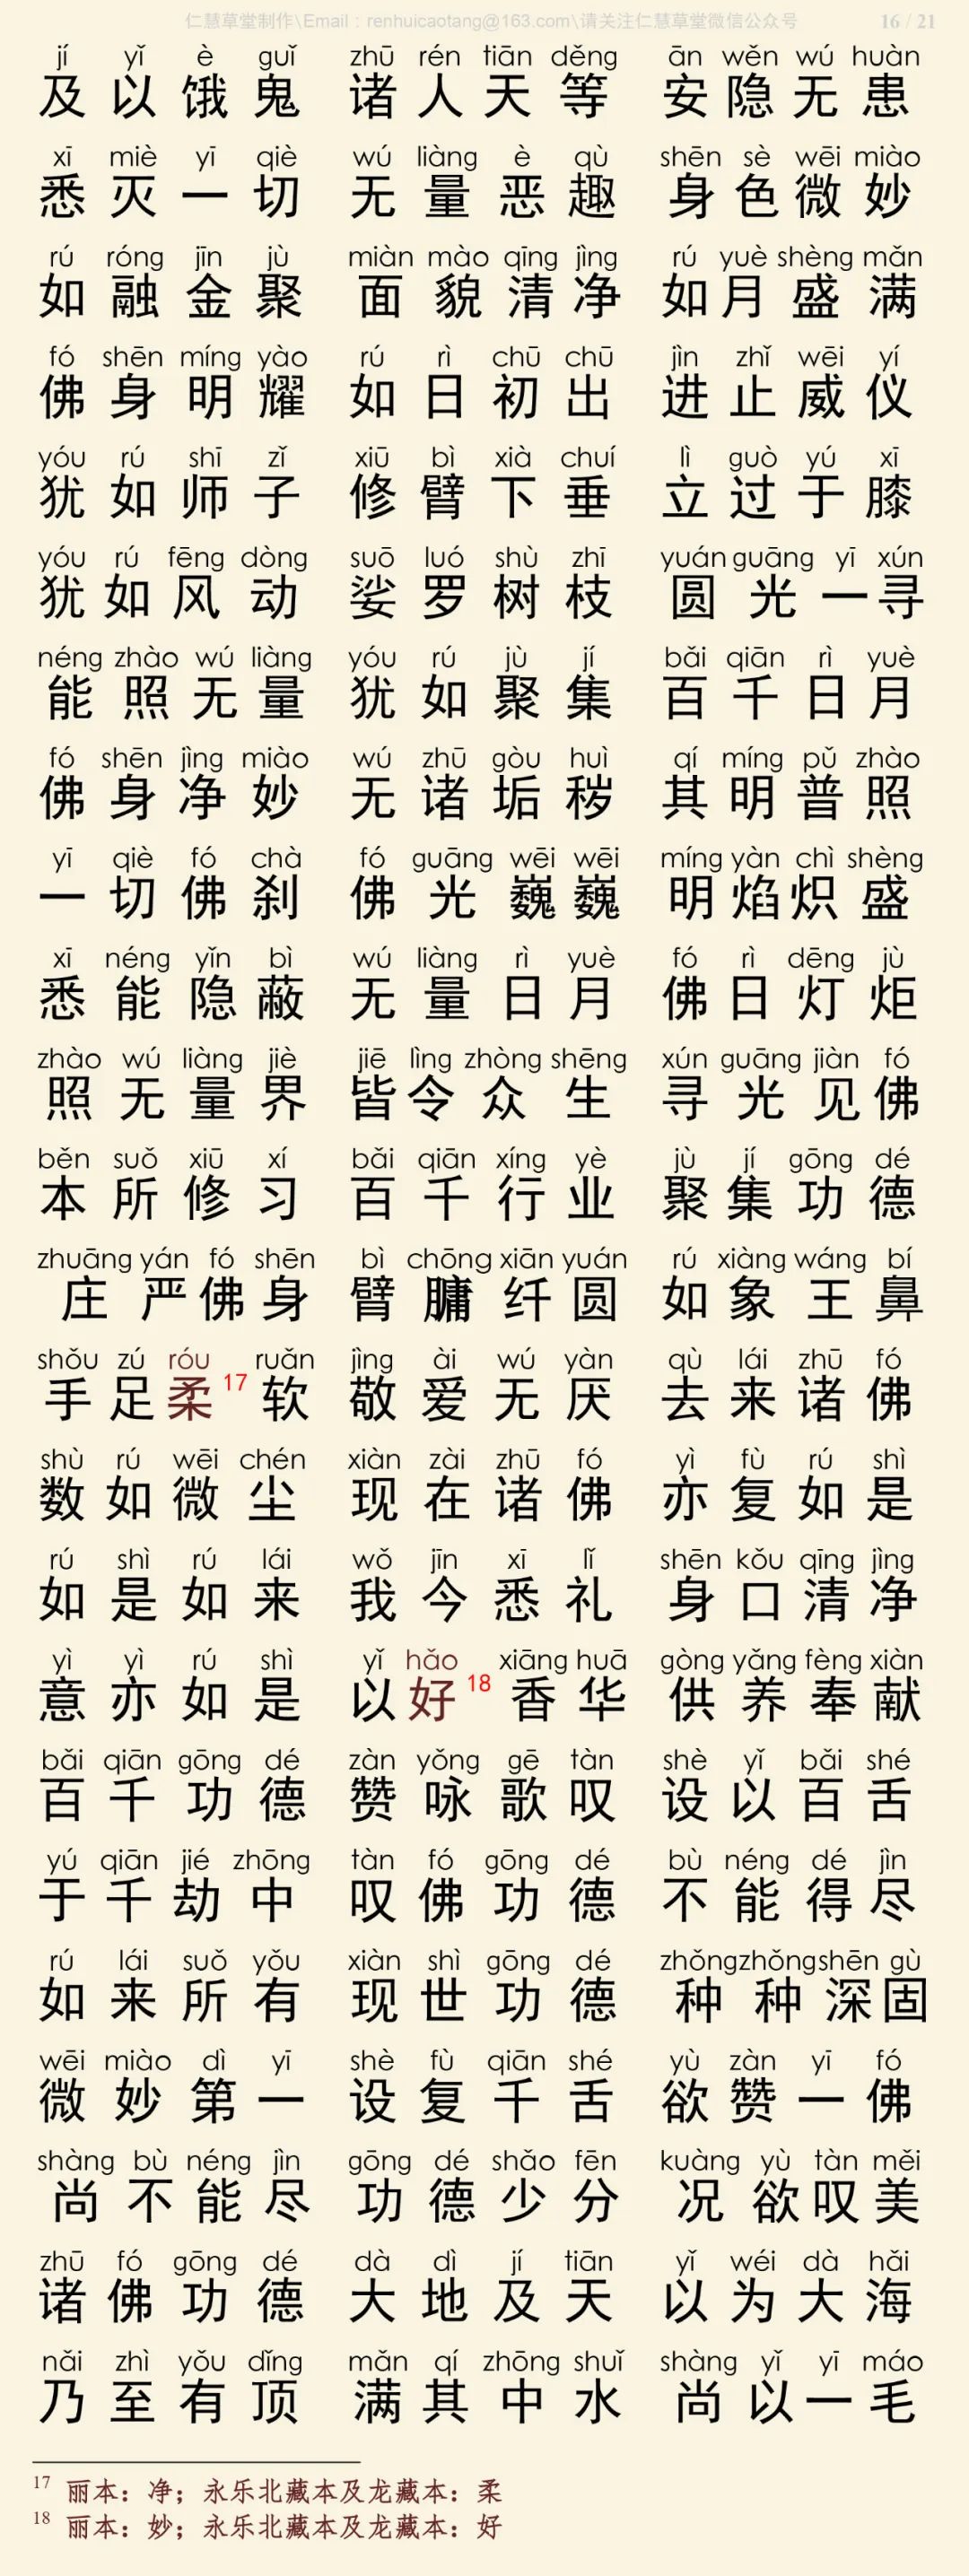 仁慧草堂制作\Email：renhuicaotang@163.com\请关注仁慧草堂微信公众号 16 / 21
jí yǐ è guǐ zhū rén tiān děng ān wěn wú huàn
及以饿鬼 诸人天等 安隐无患
xī miè yī qiè wú liàng è qù shēn sè wēi miào
悉灭一切 无量恶趣 身色微妙
rú róng jīn jù miàn mào qīng jìng rú yuè shèng mǎn
如融金聚 面貌清净 如月盛满
fó shēn míng yào rú rì chū chū jìn zhǐ wēi yí
佛身明耀 如日初出 进止威仪
yóu rú shī zǐ xiū bì xià chuí lì guò yú xī
犹如师子 修臂下垂 立过于膝
yóu rú fēng dòng suō luó shù zhī yuán guāng yī xún
犹如风动 娑罗树枝 圆光一寻
néng zhào wú liàng yóu rú jù jí bǎi qiān rì yuè
能照无量 犹如聚集 百千日月
fó shēn jìng miào wú zhū gòu huì qí míng pǔ zhào
佛身净妙 无诸垢秽 其明普照
yī qiè fó chà fó guāng wēi wēi míng yàn chì shèng
一切佛刹 佛光巍巍 明焰炽盛
xī néng yǐn bì wú liàng rì yuè fó rì dēng jù
悉能隐蔽 无量日月 佛日灯炬
zhào wú liàng jiè jiē lìng zhòng shēng xún guāng jiàn fó
照无量界 皆令众生 寻光见佛
běn suǒ xiū xí bǎi qiān xíng yè jù jí gōng dé
本所修习 百千行业 聚集功德
zhuāng yán fó shēn bì chōng xiān yuán rú xiàng wáng bí
庄严佛身 臂𦟛纤圆 如象王鼻
shǒu zú róu ruǎn jìng ài wú yàn qù lái zhū fó
手足柔17软 敬爱无厌 去来诸佛
shù rú wēi chén xiàn zài zhū fó yì fù rú shì
数如微尘 现在诸佛 亦复如是
rú shì rú lái wǒ jīn xī lǐ shēn kǒu qīng jìng
如是如来 我今悉礼 身口清净
yì yì rú shì yǐ hǎo xiāng huā gòng yǎng fèng xiàn
意亦如是 以好18香华 供养奉献
bǎi qiān gōng dé zàn yǒng gē tàn shè yǐ bǎi shé
百千功德 赞咏歌叹 设以百舌
yú qiān jié zhōng tàn fó gōng dé bù néng dé jìn
于千劫中 叹佛功德 不能得尽
rú lái suǒ yǒu xiàn shì gōng dé zhǒng zhǒng shēn gù
如来所有 现世功德 种种深固
wēi miào dì yī shè fù qiān shé yù zàn yī fó
微妙第一 设复千舌 欲赞一佛
shàng bù néng jìn gōng dé shǎo fēn kuàng yù tàn měi
尚不能尽 功德少分 况欲叹美
zhū fó gōng dé dà dì jí tiān yǐ wéi dà hǎi
诸佛功德 大地及天 以为大海
nǎi zhì yǒu dǐng mǎn qí zhōng shuǐ shàng yǐ yī máo
乃至有顶 满其中水 尚以一毛
17 丽本：净；永乐北藏本及龙藏本：柔
18 丽本：妙；永乐北藏本及龙藏本：好